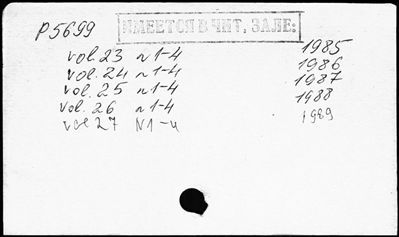 P5699
ИМЕЕТСЯ В ЧИТ. ЗАЛЕ:
vol. 23 n 1-4 1985
vol. 24 n 1-4 1986
vol. 25 n 1-4 1987
vol. 26 n 1-4 1988
vol 27 N1-4 1989